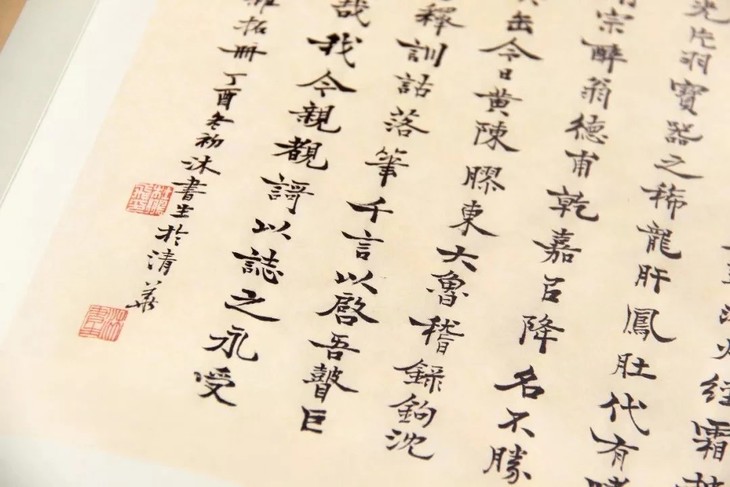 經霜
光片羽寶器之稀龍肝鳳肚代有
宗醉翁德甫乾嘉㠯降名不勝
缶今日黃陳膠東大魯稽録鉤沈
釋訓詁落筆千言以啓吾瞽巨
哉我今親觀謌以誌之永受
拓冊丁酉冬初沐書生於清華